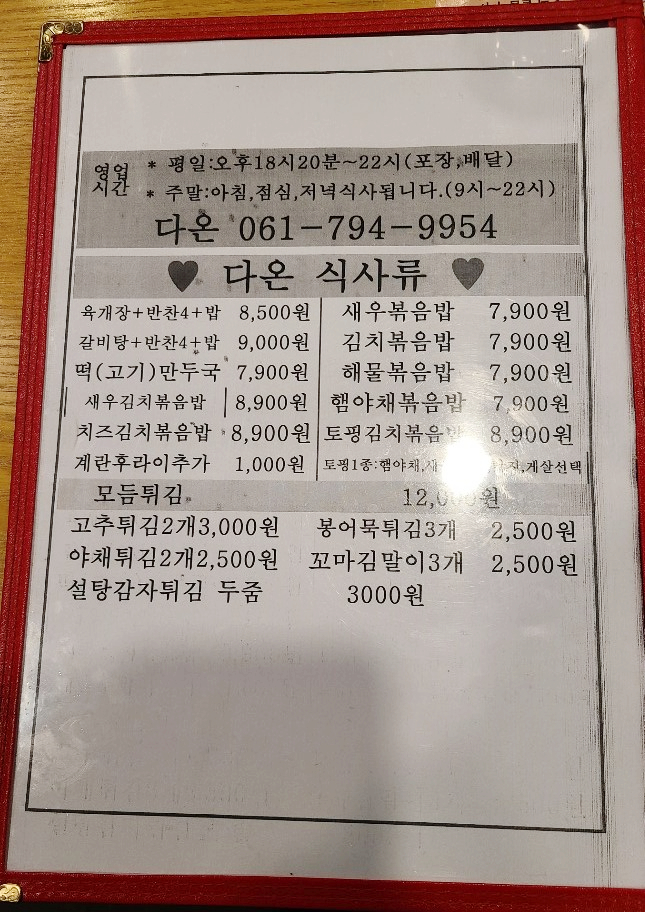 영업 시간
* 평일:오후18시20분~22시(포장,배달)
* 주말:아침,점심,저녁식사됩니다.(9시~22시)
다온 061-794-9954
♥ 다온 식사류 ♥
육개장+반찬4+밥 8,500원
새우볶음밥 7,900원
갈비탕+반찬4+밥 9,000원
김치볶음밥 7,900원
떡(고기)만두국 7,900원
해물볶음밥 7,900원
새우김치볶음밥 8,900원
햄야채볶음밥 7,900원
치즈김치볶음밥 8,900원
토핑김치볶음밥 8,900원
계란후라이추가 1,000원
토핑1종:햄야채,게살선택
모듬튀김 12,000원
고추튀김2개3,000원
봉어묵튀김3개 2,500원
야채튀김2개2,500원
꼬마김말이3개 2,500원
설탕감자튀김 두줌 3000원